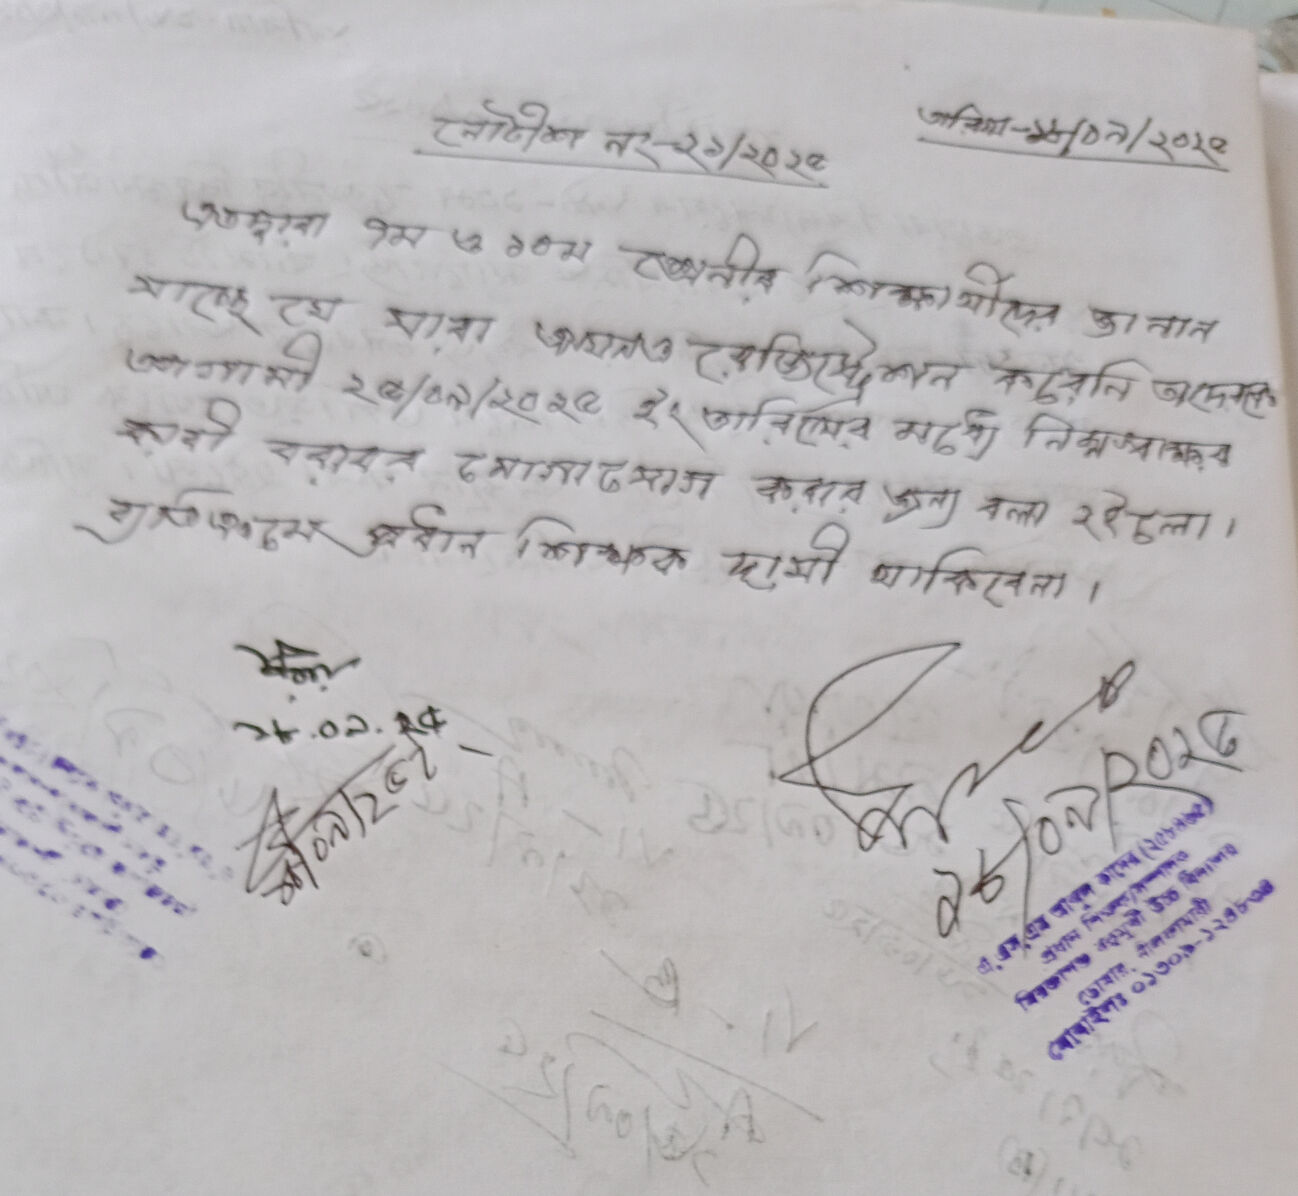 নোটীশ নং-২১/২০২৫
তারিখ-১৮/০৯/২০২৫
এতদ্বারা ৯ম ও ১০ম শ্রেনীর শিক্ষার্থীদের জানান
যাচ্ছে যে যারা এখনও রেজিস্ট্রেশন করেনি তাদেরকে
আগামী ২৫/০৯/২০২৫ ইং তারিখের মধ্যে নিম্নস্বাক্ষর
কারী বরাবর যোগাযোগ করার জন্য বলা হইলো।
ব্যতিক্রমে প্রধান শিক্ষক দায়ী থাকিবেনা।
১৮.০৯.২৫
১৮/০৯/২০২৫
এ, এস, এম আবুল কাসেম
প্রধান শিক্ষক
উচ্চ বিদ্যালয়
ডোমার, নীলফামারী